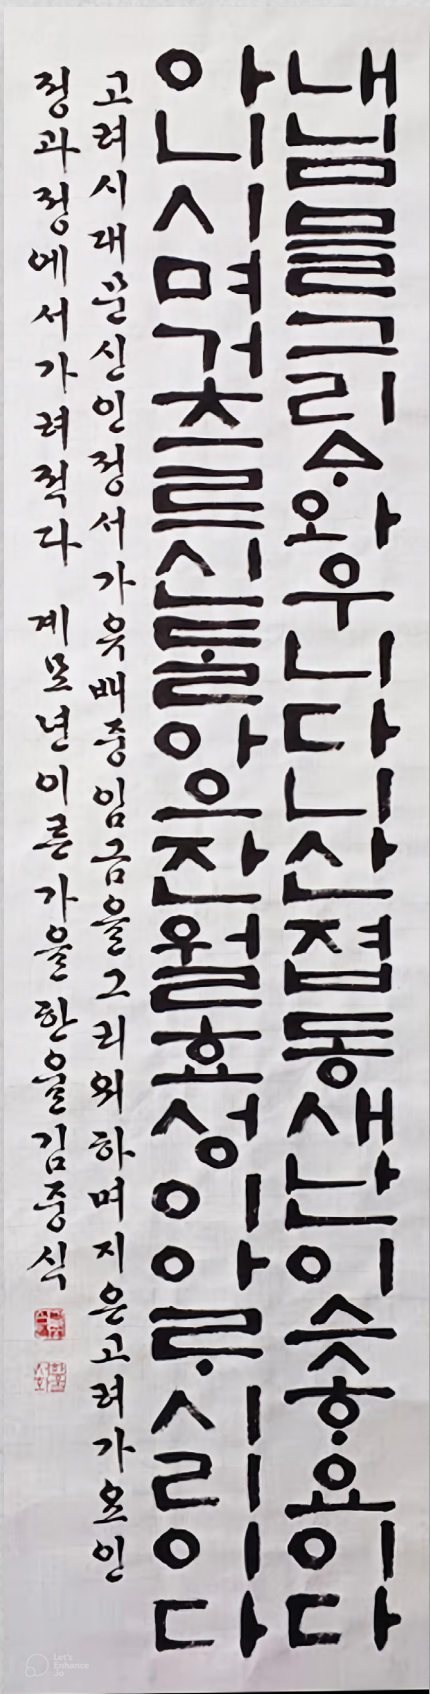 내님믈그리ᅀᆞ와우니다니산졉동새난이슷ᄒᆞ요이다
아니시며거츠르신ᄃᆞᆯ아으잔월효성이아ᄅᆞ시리이다
고려시대문신인정서가유배중임금을그리워하며지은고려가요인
정과정에서가려적다 계묘년이른가을한울김중식
Let's
Enhance
.ai